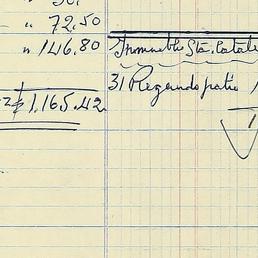 " 72.50
" 146.80
$1,165.42
Inmueble Sta. Catal
31 Regando patio